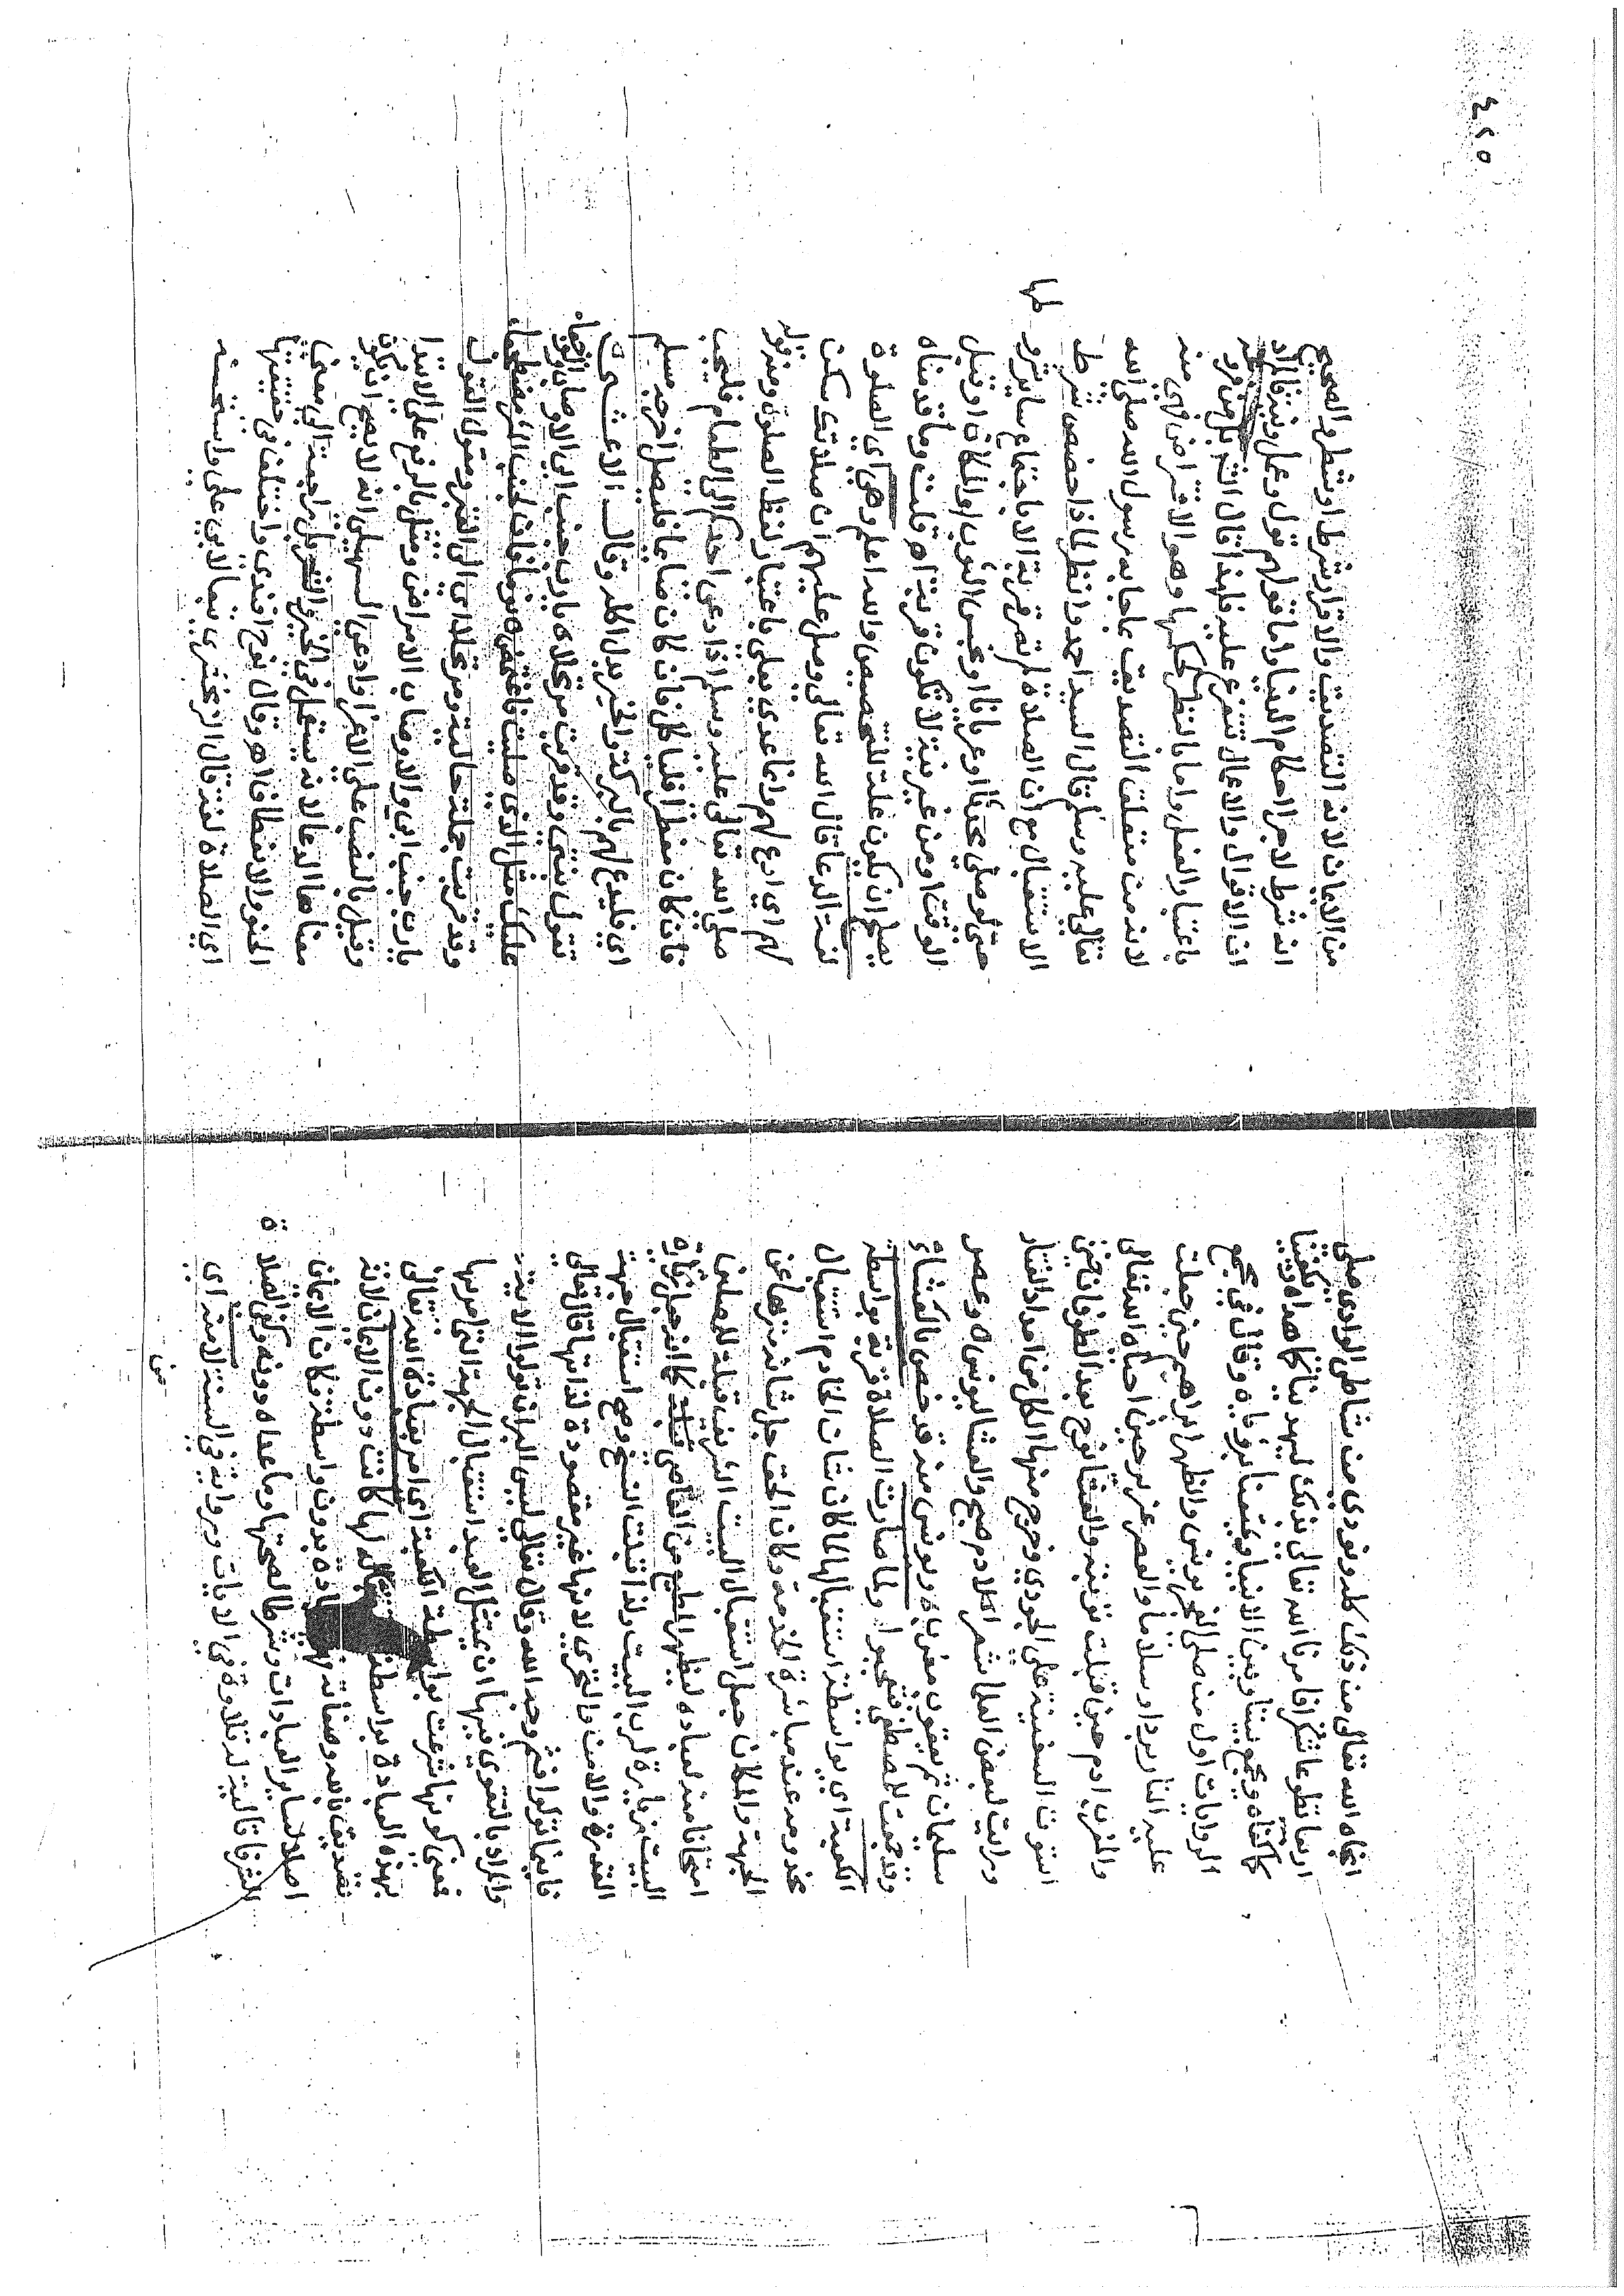 انجاه الله تعالى من ذلك كله ونودي من شاطئ الوادي صلى
اربعا تطوعا شكرا فامرنا الله تعالى بذلك ليهدينا كما هداه ويكفينا
كما كفاه ويجمع بيننا وبين الانبيا وقال في مجمع
الروايات اول من صلى الفجر يونس والظهر ابراهيم حين جعلت
عليه النار بردا وسلاما والعصر عزير حين احياه الله تعالى
والمغرب ادم حين قبلت توبته والعشا نوح بعد الطوفان حين
استوت السفينة على الجودي وخرج منها
ورايت لبعض العلما شعر صبح والعشا ليونس ه وعصر
سليمان ثم يعقوب مغربا ه ويونس منه قد خص بالعشاء
وقد جمعت للمصطفى ولما صارت الصلاة قربة بواسطة
الكعبة اي بواسطة استقبالها لما كان شان الخادم استقبال
مخدومه عند مباشرة الخدمة وكان الحق جل شانه منزها عن
الجهة والمكان جعل استقبال البيت الشريف قبلة للمصلين
امتحانا منه لعباده ليظهر المطيع من العاصي كما انه جعل زيارة
البيت زيارة لرب البيت ولذا قبلت النسخ وصح استقبال جهة
القدرة والامن والتحري لانها غير مقصودة لذاتها قال تعالى
فاينما تولوا فثم وجه الله وقال تعالى ليس البر ان تولوا الاية
والمراد بالتقوى فيها ان يمتثل العبد استقبال الجهة التي امر بها
فمعنى كونها شرعت بواسطة الكعبة اي امر بعبادة الله تعالى
بهذه العبادة بواسطة استقباله لها كانت دون الايمان لانه
تصديق بالله وصفاته بدون واسطة فكان الايمان
اصلا لساير العبادات وشرطا لصحتها وما عداه دونه وكون الصلاة
في الايات وبرواية في السنة
من
٤٢٥
من الايمان لانه التصديق والاقرار شرط او شطر والصحيح
انه شرط لاجرا احكام الدنيا واما قولهم قول وعمل
ان الاقوال والاعمال تتفرع عليه فلهذا قال
باعتبار الفعل واما بالنظر لحكمها وهو الافتراض فهي منه
لانه من متعلق التصديق بما جا به رسول الله صلى الله
تعالى عليه وسلم قال السيد احمد وانظر لماذا خصص شرط
الاستقبال مع ان الصلاة لم تصر قربة الا باجتماع ساير شروطها
حتى لو صلى محدثا او عريانا او نجس الثوب او المكان او قبل
الوقت او من غير نية لا تكون قربة اه قلت وما قدمناه
يصلح ان يكون علة للتخصيص والله اعلم وهي اي الصلوة
لغة الدعا قال الله تعالى وصل عليهم ان صلاتك سكن
لهم اي ادع لهم وانما عدي بعلى باعتبار لفظ الصلوة ومنه قوله
صلى الله تعالى عليه وسلم اذا دعي احدكم الى الطعام فليجب
فان كان مفطرا فلياكل وان كان صايما فليصل اخرجه مسلم
اي فليدع لهم بالبركة والخير بدل اكله وقال الاعشى
تقول بنتي وقد قربت مرتحلا ه يا رب جنب ابي الاوصاب والوجعا
عليك مثل الذي صليت فاغتمضي ه نوما فان لجنب المرء مضطجعا
وقد قربت جملة حالية ومرتحلا اي الى القبر ومقول القول
يا رب جنب ابي والاوصاب الامراض ومثل بالرفع على الابتدا
وقيل بالنصب على الاغرا وادعى السهيلي انه لا يصح ان يكون
معناها الدعا لانه يستعمل في الخير والشر بل راجعة الى معنى
الحنو والانعطاف اه وقال نوح افندي واختلف في حقيقتها
اي الصلاة لغة قال الزمخشري تبعا لابي علي واستحسنه